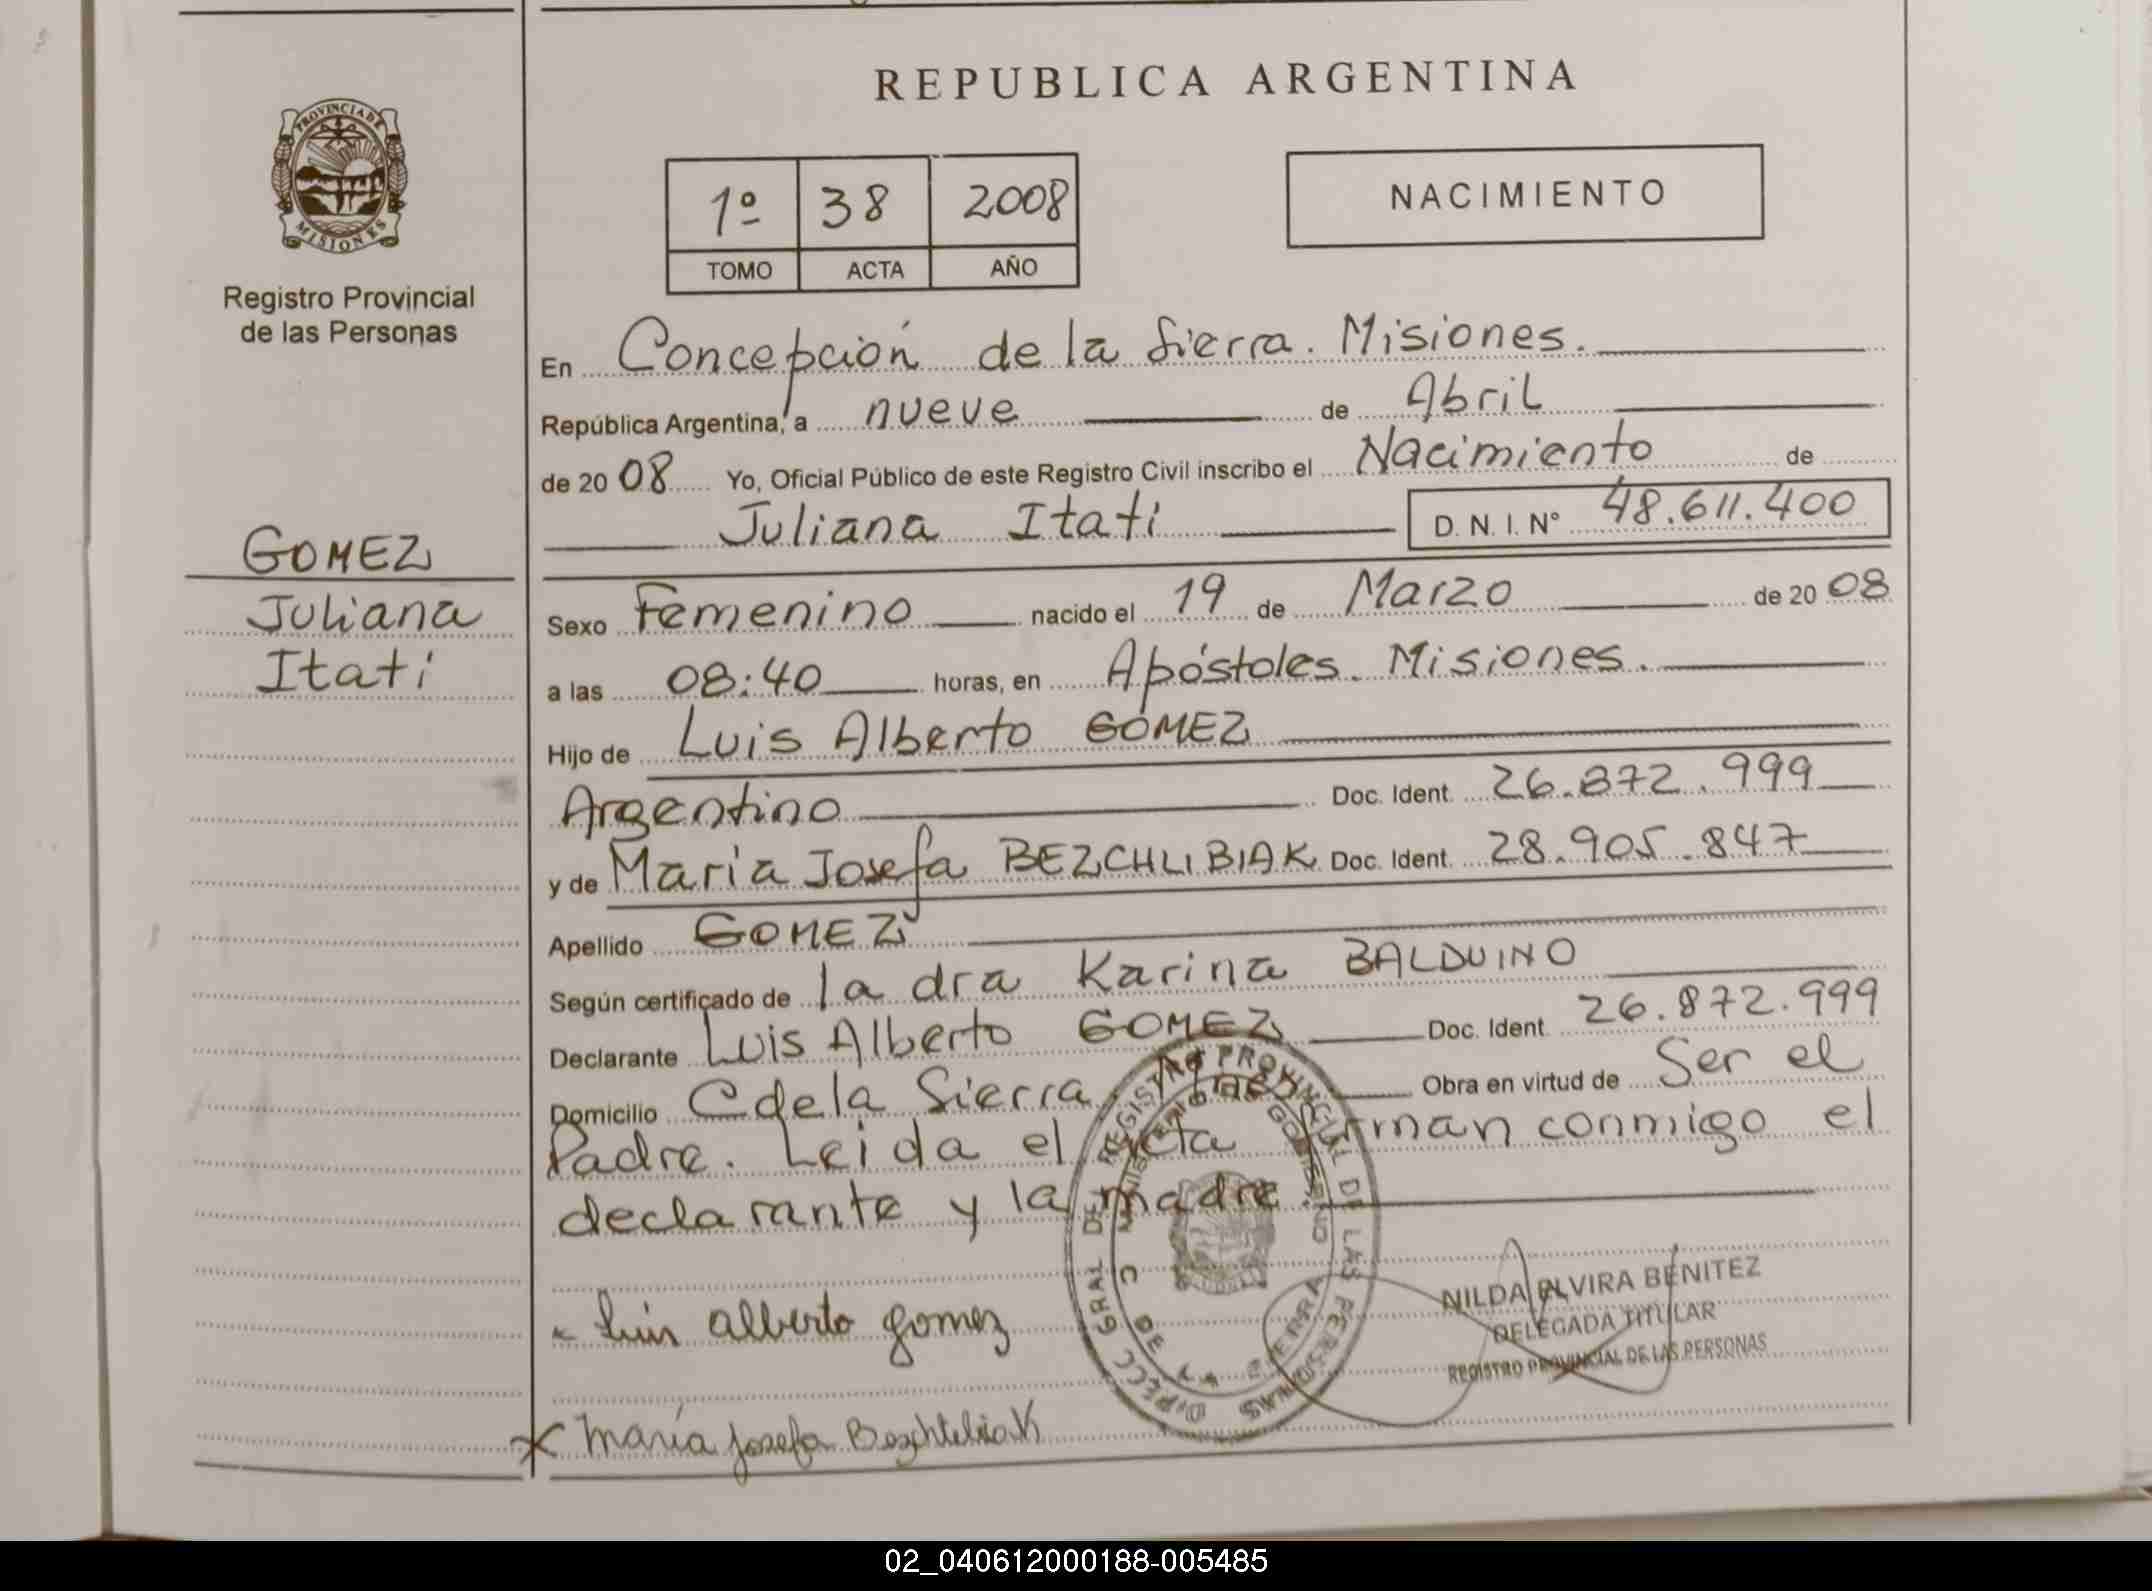 REPUBLICA ARGENTINA
PROVINCIA DE
MISIONES
Registro Provincial
de las Personas
1º 38 2008
TOMO ACTA AÑO
NACIMIENTO
En Concepción de la Sierra. Misiones.
República Argentina, a nueve de Abril
de 2008 Yo, Oficial Público de este Registro Civil inscribo el Nacimiento de
Juliana Itati D. N. I. Nº 48.611.400
GOMEZ
Juliana
Itati
Sexo Femenino nacido el 19 de Marzo de 2008
a las 08:40 horas, en Apóstoles. Misiones.
Hijo de Luis Alberto GOMEZ
Argentino Doc. Ident. 26.872.999
y de Maria Josefa BEZCHLIBIAK Doc. Ident. 28.905.847
Apellido GOMEZ
Según certificado de la dra Karina BALDUINO
Declarante Luis Alberto GOMEZ Doc. Ident. 26.872.999
Domicilio C de la Sierra Obra en virtud de Ser el
Padre. Leida el acta firman conmigo el
declarante y la madre.
DIRECC GRAL DE REGISTRO PROVINCIAL DE LAS PERSONAS
MINISTERIO DE GOBIERNO
C DE SIERRA
NILDA ELVIRA BENITEZ
DELEGADA TITULAR
REGISTRO PROVINCIAL DE LAS PERSONAS
Luis alberto gomez
x maría josefa BezchlibiaK
02_040612000188-005485